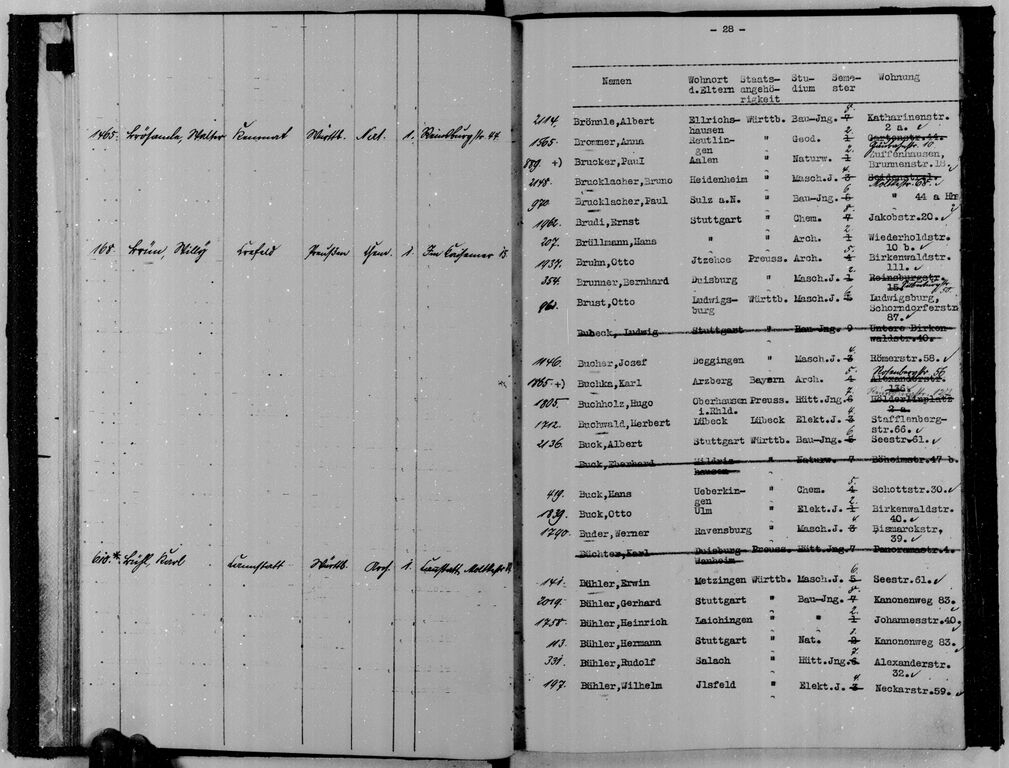 1465. Walter Kemnat Württb. Nat. 1.
168. Brün, Willy Krefeld Preußen Chem. 1.
610.* Bühl, Karl Cannstatt Württb. Arch. 1. Cannstatt, Moltkestr.
- 28 -
Namen Wohnort Staats- Stu- Seme- Wohnung
d.Eltern angehö- dium ster
rigkeit
8.
2114. Brönnle,Albert Ellrichs- Württb. Bau-Jng. 7 Katharinenstr.
hausen 2 a. ✓
2.
1565. Brommer,Anna Reutlin- " Geod. 1 Gartenstr.44.
gen
2.
889. +) Brucker,Paul Aalen " Naturw. 1 Zuffenhausen,
Brunnenstr.18.✓
4.
2148. Brucklacher,Bruno Heidenheim " Masch.J. 3 Seidenstr.
Moltkestr. 68. ✓
6
970. Brucklacher,Paul Sulz a.N. " Bau-Jng. 5 " 44 a Hh
8.
1962. Brudi,Ernst Stuttgart " Chem. 7 Jakobstr.20.✓
2.
207. Brüllmann,Hans " " Arch. 1 Wiederholdstr.
10 b.✓
5.
1437. Bruhn,Otto Jtzehoe Preuss. Arch. 4 Birkenwaldstr.
111. ✓
2.
354. Brunner,Bernhard Duisburg Masch.J. 1 Reinsburgstr.
15.
6
962. Brust,Otto Ludwigs- Württb. Masch.J. 5 Ludwigsburg,
burg Schorndorferstr
87.✓
Bubeck, Ludwig Stuttgart " Bau-Jng. 9 Untere Birken-
waldstr.40.
4.
1146. Bucher,Josef Deggingen " Masch.J. 3 Römerstr.58.✓
5. Rosenbergstr. 56
1865. +) Buchka,Karl Arzberg Bayern Arch. 4 Alexanderstr.
136.
7.
1805. Buchholz,Hugo Oberhausen Preuss. Hütt.Jng. 6 Hölderlinplatz
i.Rhld. 2 a.
4
1712. Buchwald,Herbert Lübeck Lübeck Elekt.J. 3 Stafflenberg-
str.66.✓
6
2136. Buck,Albert Stuttgart Württb. Bau-Jng. 5 Seestr.61.✓
Buck,Eberhard " Naturw. 7 Böheimstr.47 b.
hausen
5.
419. Buck,Hans Ueberkin- " Chem. 4 Schottstr.30.✓
gen
2.
1839. Buck,Otto Ulm " Elekt.J. 1 Birkenwaldstr.
40.✓
1790. Buder,Werner Ravensburg " Masch.J. Bismarckstr,
39.✓
Büchter,Karl Duisburg Preuss. Hütt.Jng.7 Panoramastr.4.
Wanheim
6.
141. Bühler,Erwin Metzingen Württb. Masch.J. 5 Seestr.61.✓
8.
2019. Bühler,Gerhard Stuttgart " Bau-Jng. 7 Kanonenweg 83.
✓
2.
1758. Bühler,Heinrich Laichingen " " 1 Johannesstr.40.
✓
113. Bühler,Hermann Stuttgart " Nat. Kanonenweg 83.
✓
7.
331. Bühler,Rudolf Salach " Hütt.Jng.6 Alexanderstr.
32.✓
4
197. Bühler,Wilhelm Jlsfeld " Elekt.J. 3 Neckarstr.59.✓